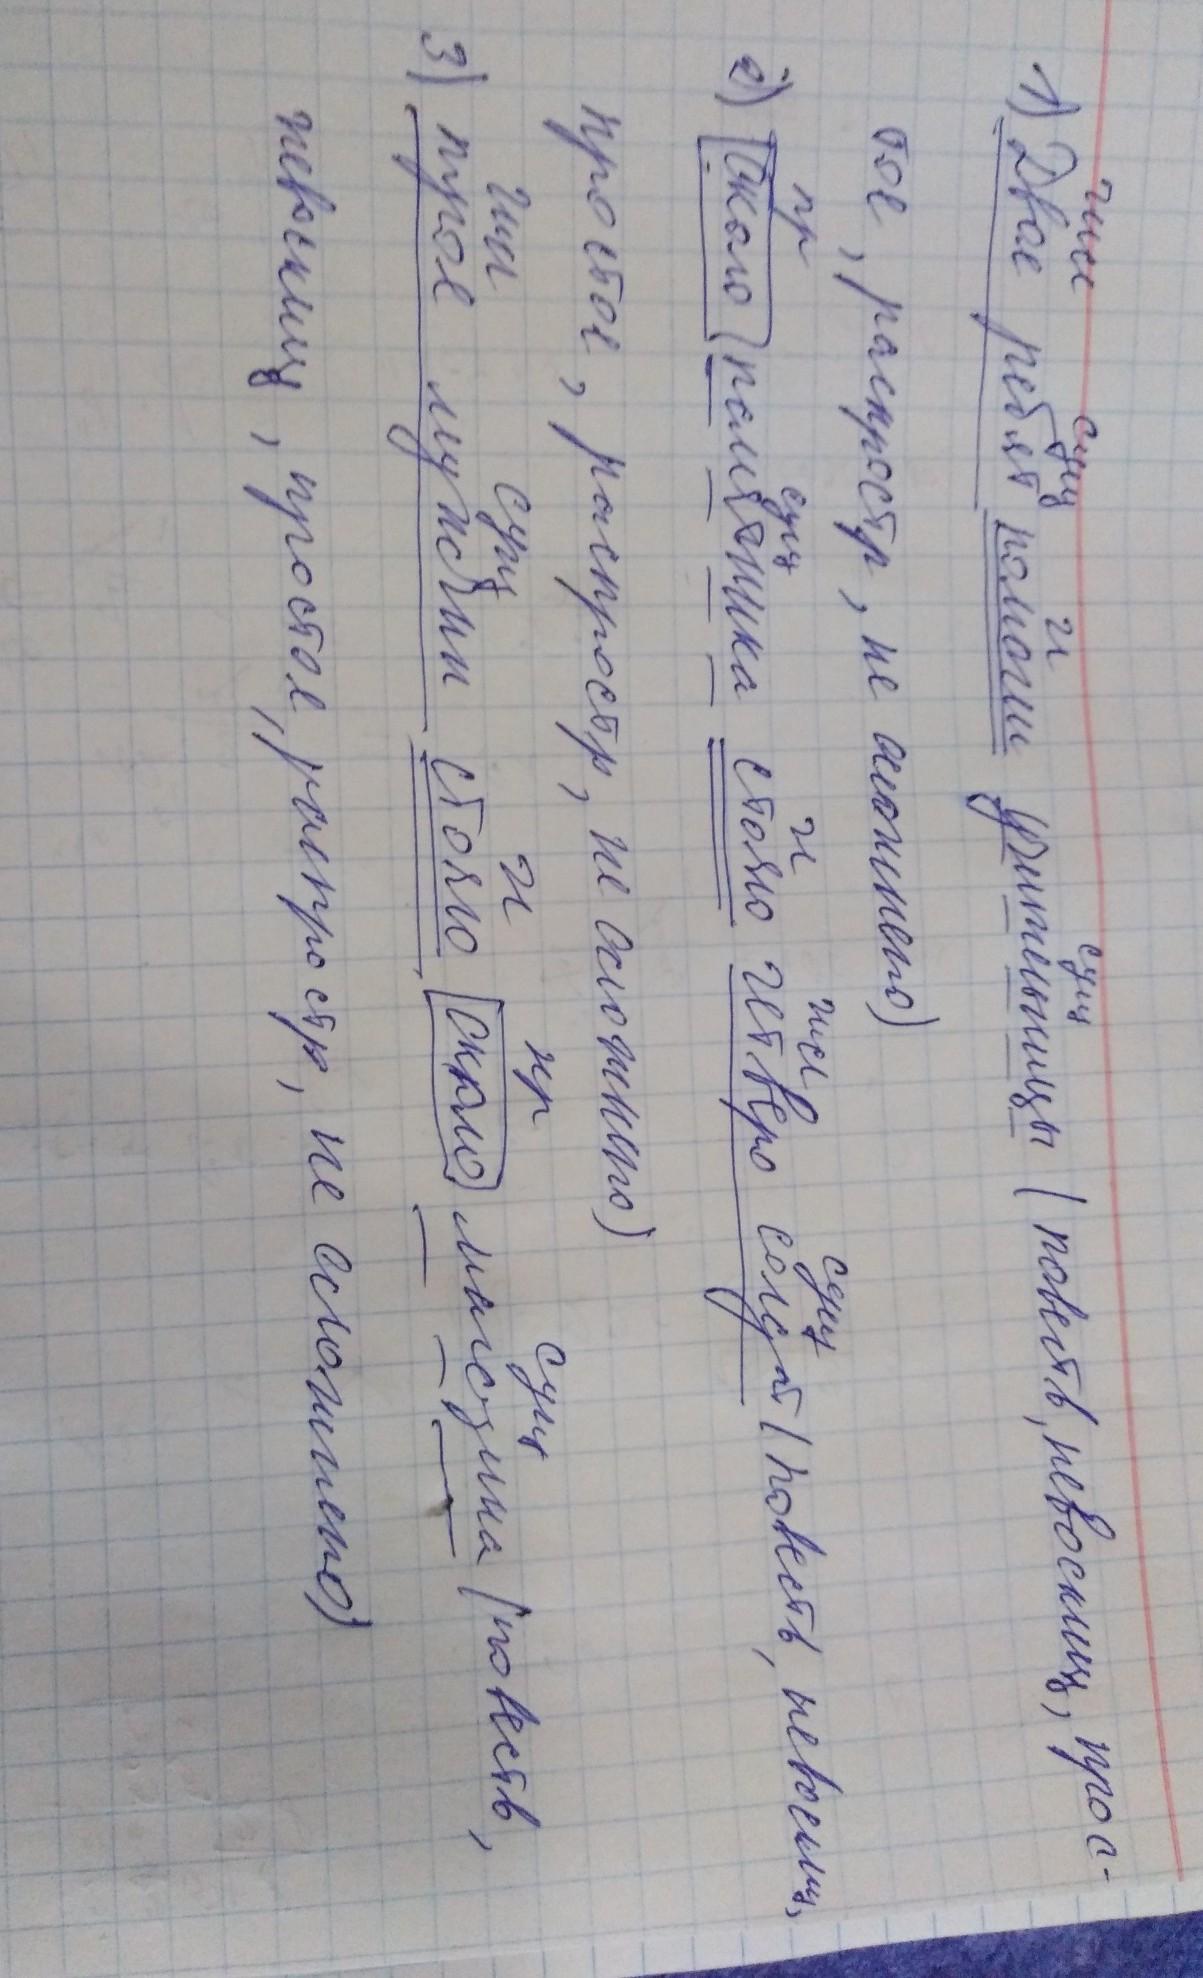 числ сущ гл сущ
1) Двое ребят помогли учительницы (повеств, невосклиц, прос-
тое, распростр, не осложнено)
пр сущ гл числ сущ
2) Около памятника стояло четверо солдат (повеств, невосклиц,
простое, распростр, не осложнено)
чис сущ гл пр сущ
3) трое мужчин стояло около магазина (повеств,
невосклиц, простое, распростр, не осложнено)